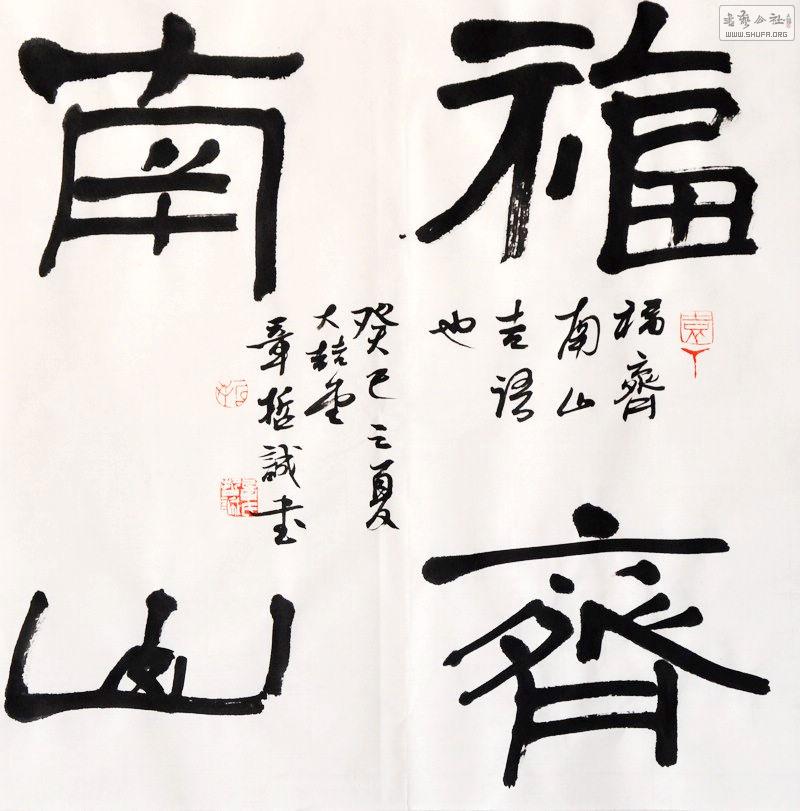 福齊
南山
福齊
南山
吉語
也
癸巳之夏
大喆堂
章哲誠書
書藝公社
WWW.SHUFA.ORG